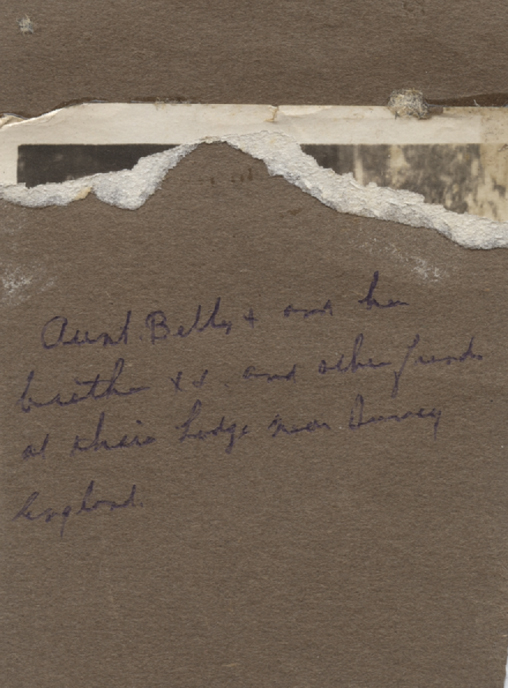 Aunt Betty + and her
brother + J. and other friends
at their Lodge near Surrey
England.